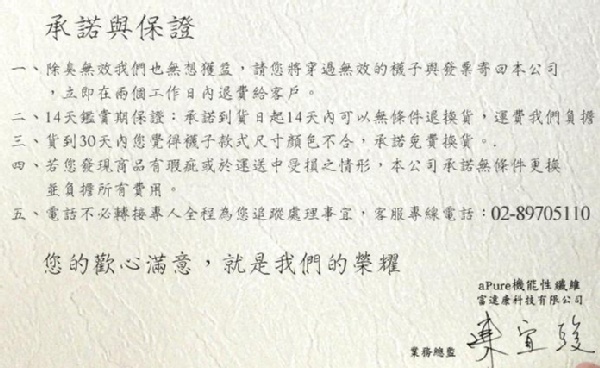 承諾與保證
一、除臭無效我們也無想獲益，請您將穿過無效的襪子與發票寄回本公司
，立即在兩個工作日內退費給客戶。
二、14天鑑賞期保證：承諾到貨日起14天內可以無條件退換貨，運費我們負擔
三、貨到30天內您覺得襪子款式尺寸顏色不合，承諾免費換貨。.
四、若您發現商品有瑕疵或於運送中受損之情形，本公司承諾無條件更換
並負擔所有費用。
五、電話不必轉接專人全程為您追蹤處理事宜，客服專線電話：02-89705110
您的歡心滿意，就是我們的榮耀
aPure機能性纖維
富達康科技有限公司
業務總監